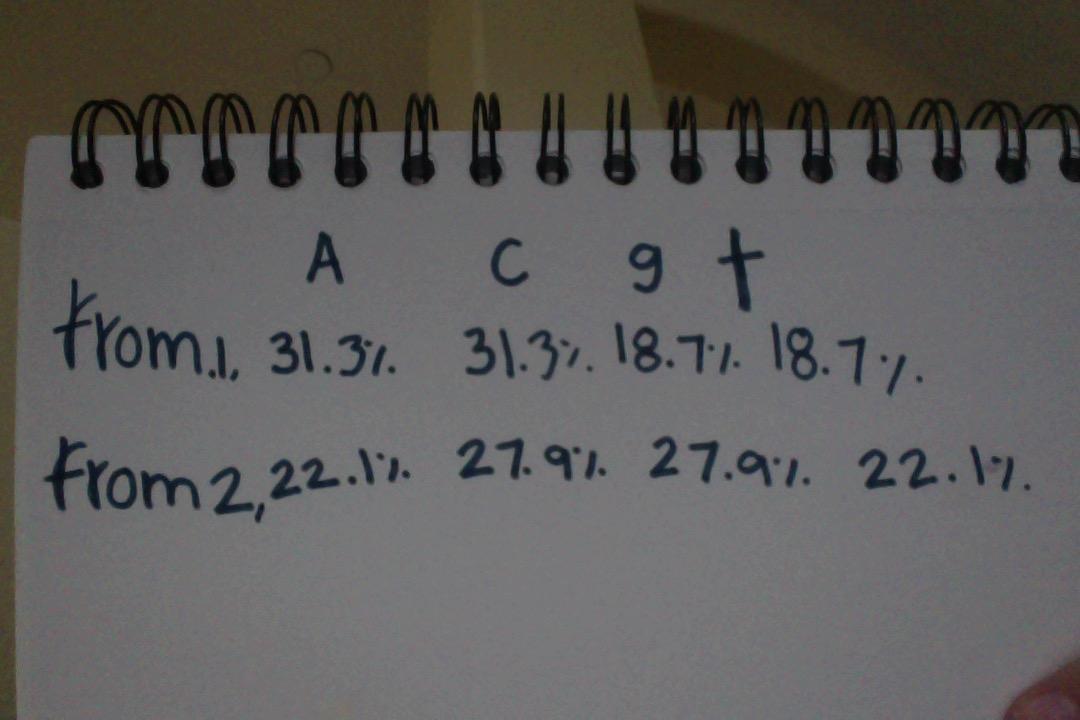 A C g t
From.1, 31.3%. 31.3%. 18.7%. 18.7%.
From 2, 22.1%. 27.9%. 27.9%. 22.1%.